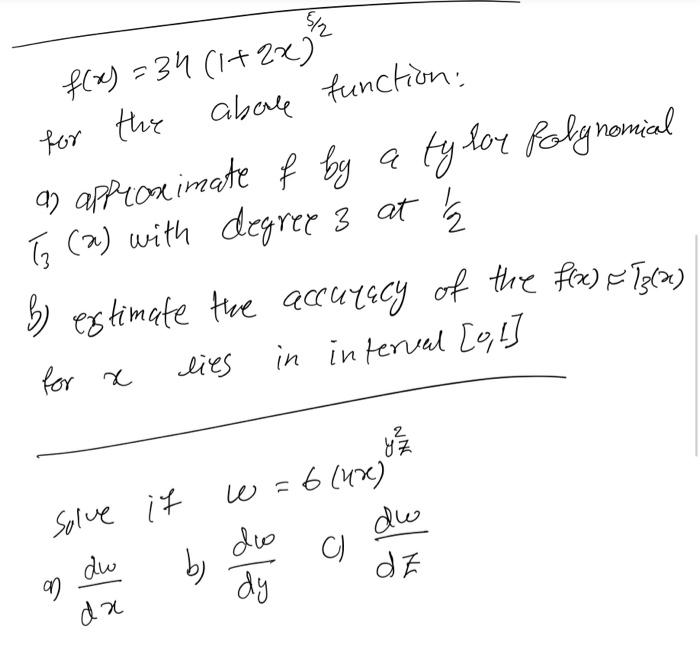 f(x) = 34 (1+2x)^5/2
for the above function:
a) approximate f by a tylor polynomial
T₃ (x) with degree 3 at 1/2
b) estimate the accuracy of the f(x) ≈ T₃(x)
for x lies in interval [0,1]
Solve if w = 6 (4x)^y²z
a) dw/dx b) dw/dy c) dw/dz